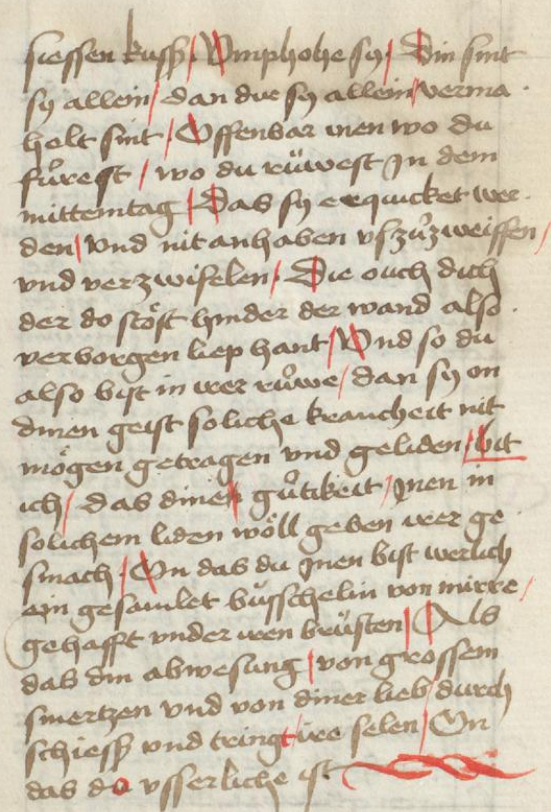 siessen kussz / Vmphohe sy / Din sint
sy allein / dan die sy allein / verma
helt sint / Offenbar inen wo du
fůrest / wo du rüwest In dem
mittemtag / Das sy erquicket wer
den / vnd nit anhaben vszůzweiffen /
vnd verzwifelen / Die ouch dich
der do stöst hinder der wand also
verborgen liep hant / Vnd so du
also bist in irer růwe / dan sy on
dinen geist soliche kranckeit nit
mögen getragen vnd geliden / bit
ich / das dinen gůtikeit / Inen in
solichem liden wöll geben irer ge
smach / On das du Inen bist werlich
ein gesamlet büsschelin von mirre /
gehafft vnder iren brüsten / Als
das din abwesung / von grossem
smertzen vnd von diner lieb / durch
schiessz vnd tringt ire selen / On
das do vsserliche ist